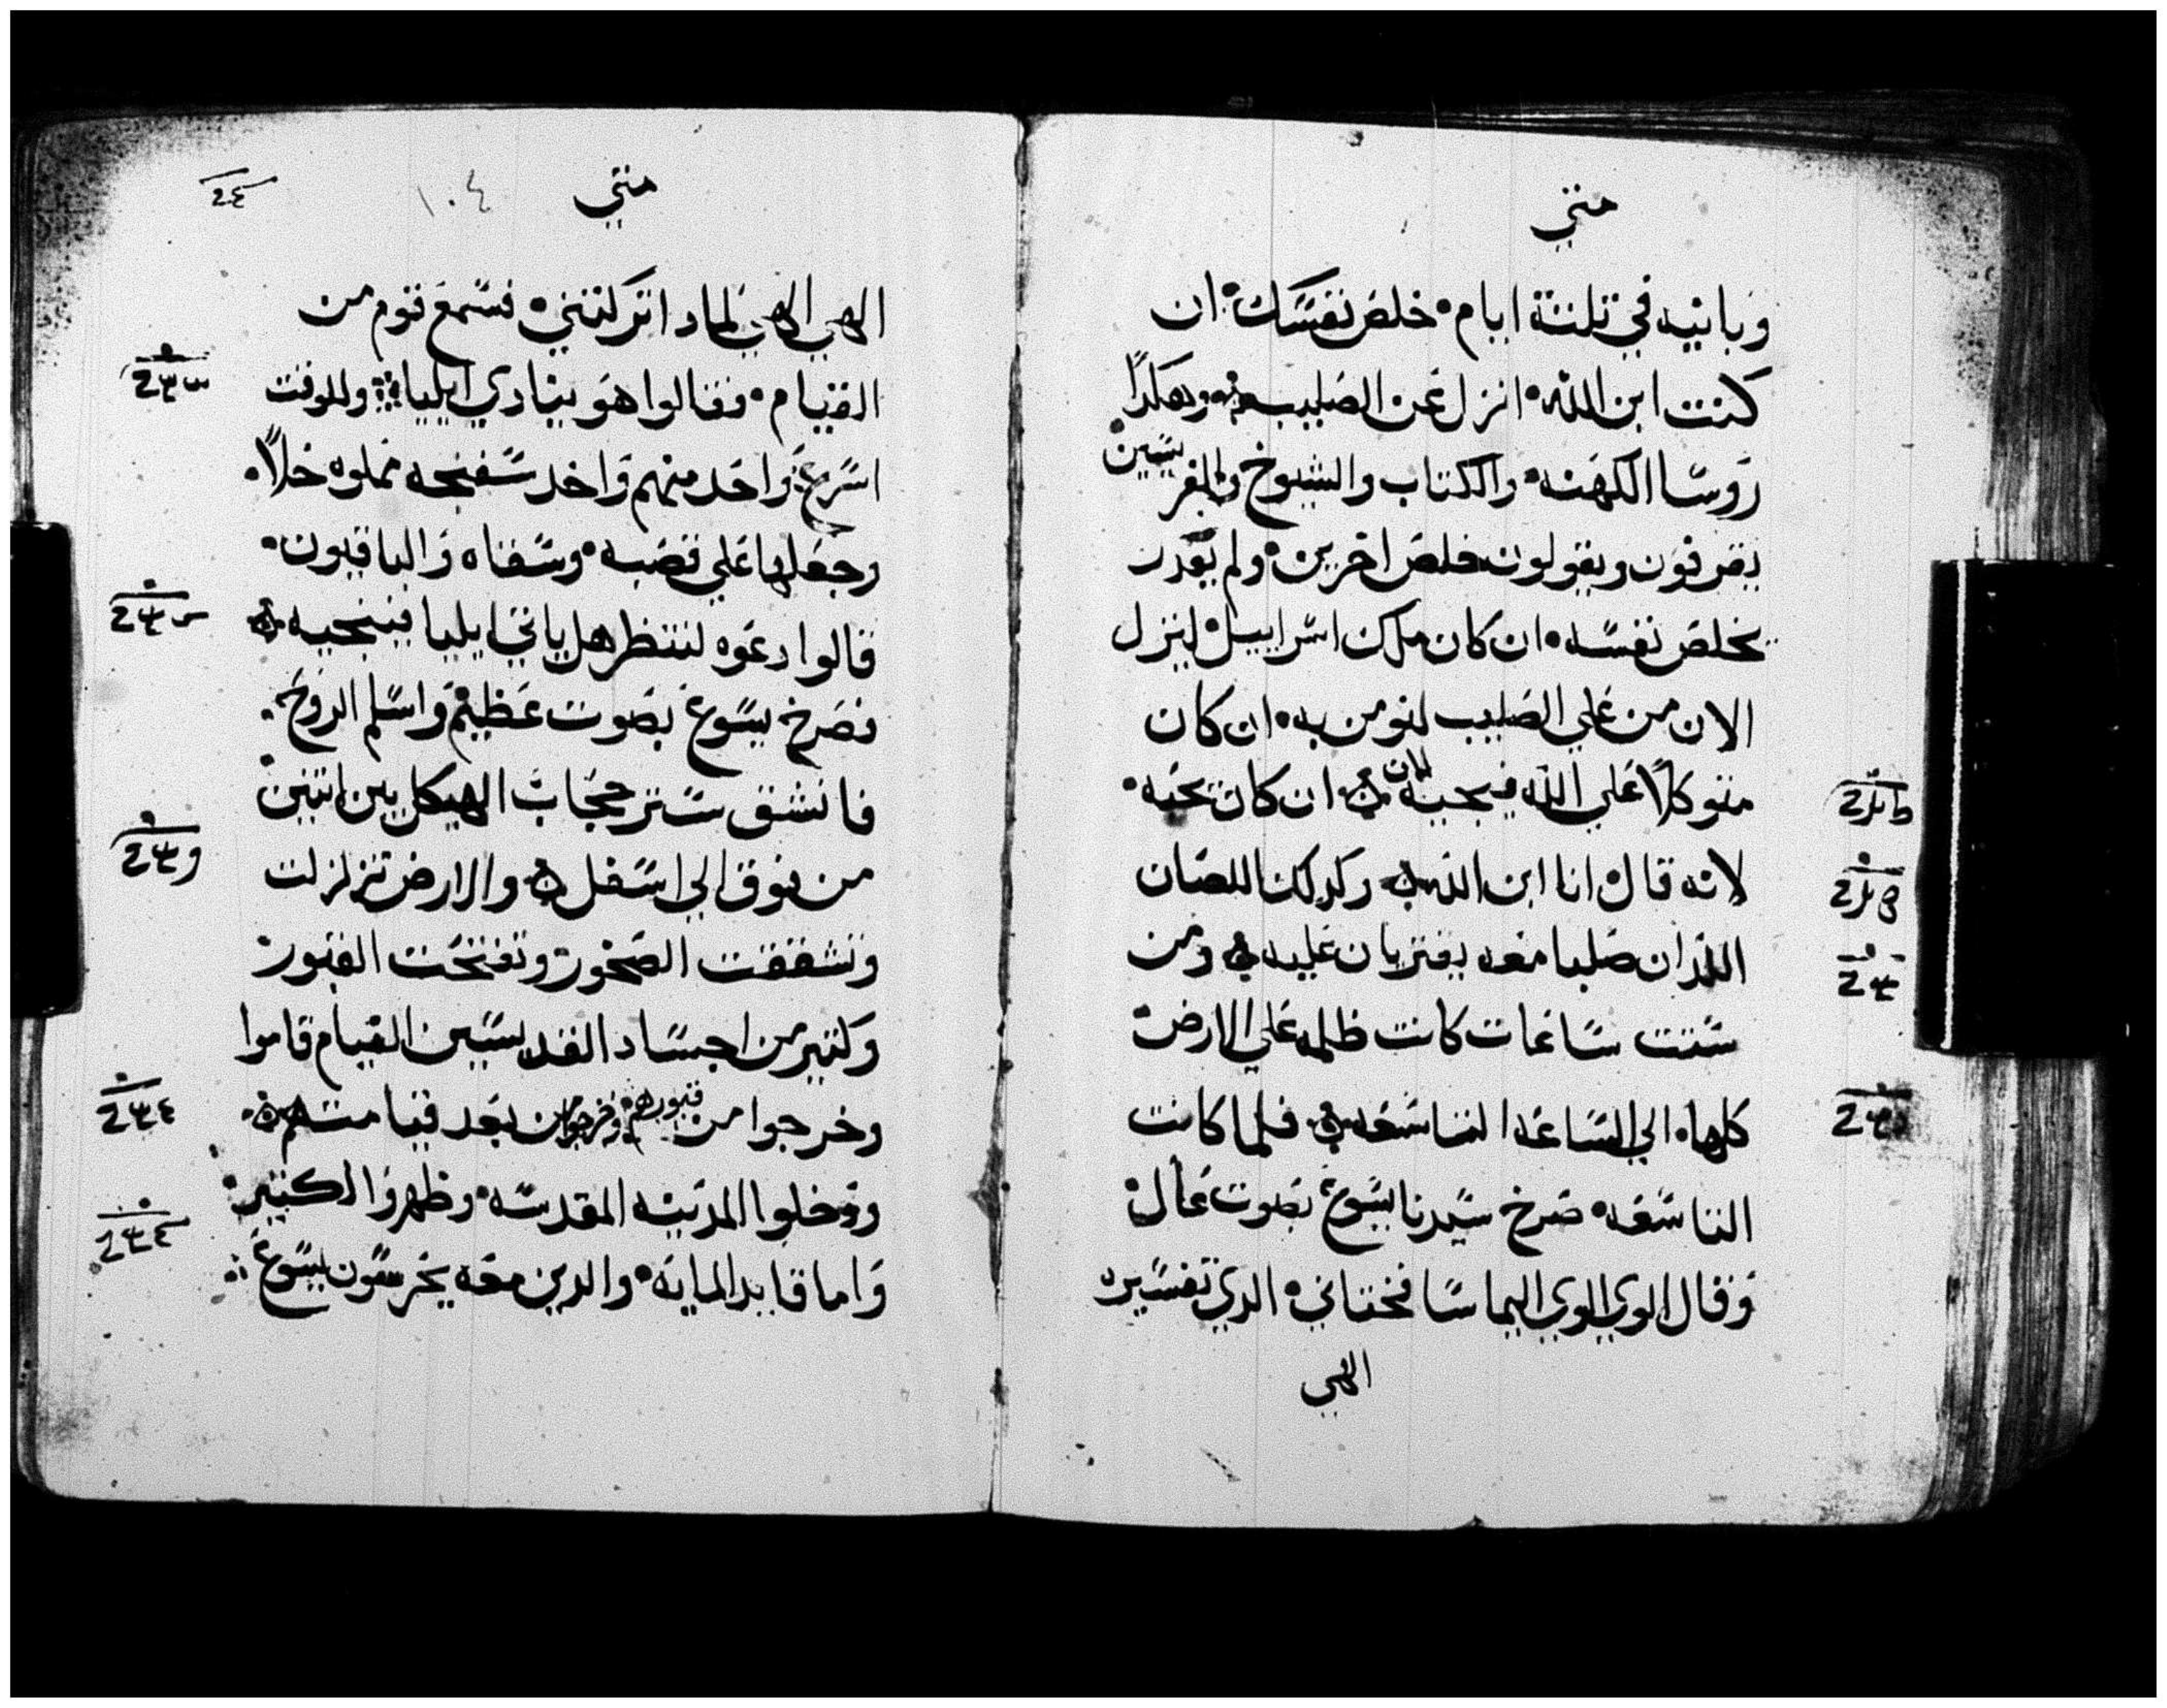 متي
وبانيه في تلتة ايام خلص نفسك ان
كنت ابن الله انزل عن الصليب وهكدا
روسا الكهنه والكتاب والشيوخ والفريسيين
يقرفون ويقولون خلص اخرين ولم يقدر
يخلص نفسه ان كان ملك اسراييل لينزل
الان من علي الصليب لنومن به ان كان
متوكلاً علي الله فينجيه الان ان كان يحبه
لانه قال انا ابن الله وكدلك اللصان
اللدان صلبا معه يفتريان عليه ومن
ستت ساعات كانت ظلمه علي الارض
كلها الي الساعه التاسعه فلما كانت
التاسعه صرخ سيدنا يسوع بصوت عال
وقال الوي الوي اليما سافختاني الدي تفسيره
الهي
متي
١٠٤
الهي الهي لمادا تركتني فسمع قوم من
القيام فقالوا هو ينادي ايليا وللوقت
اسرع واحد منهم واخد سفنجه مملوه خلاً
وجعلها علي قصبه وسقاه والباقيون
قالوا دعوه لننتظر هل ياتي ايليا فينجيه
فصرخ يسوع بصوت عظيم واسلم الروح
فانشق ستر حجاب الهيكل بين اتنين
من فوق الي اسفل والارض تزلزلت
وتشققت الصخور وتفتحت القبور
وكتير من اجساد القديسيين القيام قاموا
وخرجوا من قبورهم وخرجوا من بعد قيامتهم
ودخلوا المدينه المقدسه وظهروا لكتير
واما قايد المايه والدين معه يحرسون يسوع